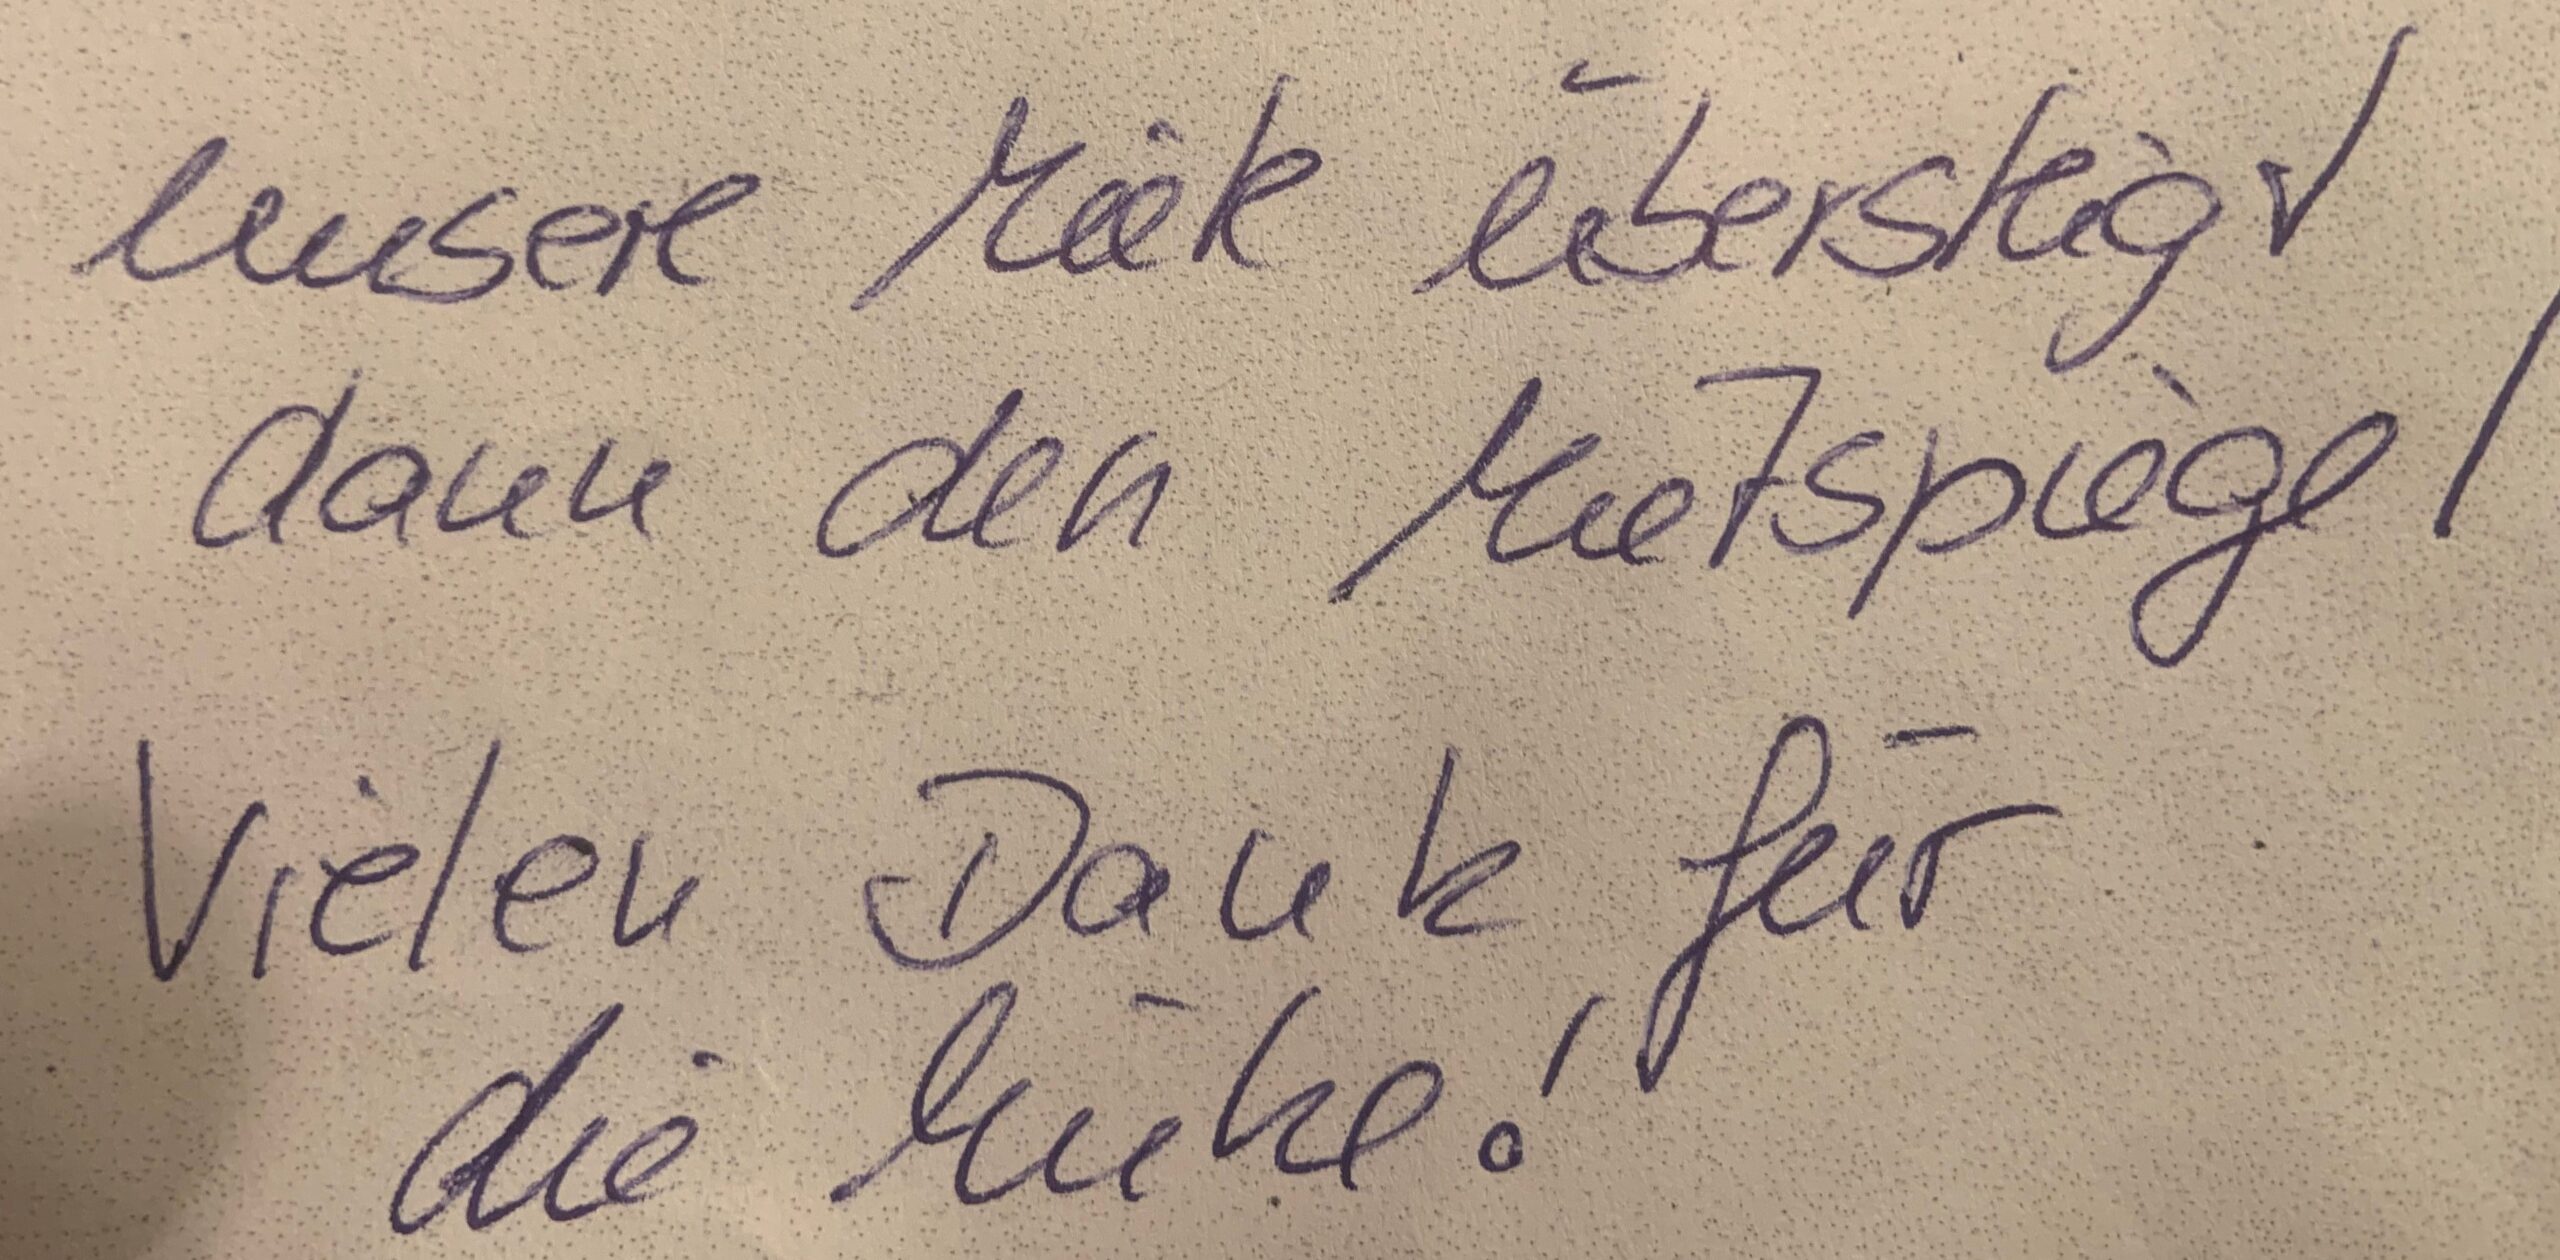 unsere Miete übersteigt
dann den Mietspiegel
Vielen Dank für
die Mühe!